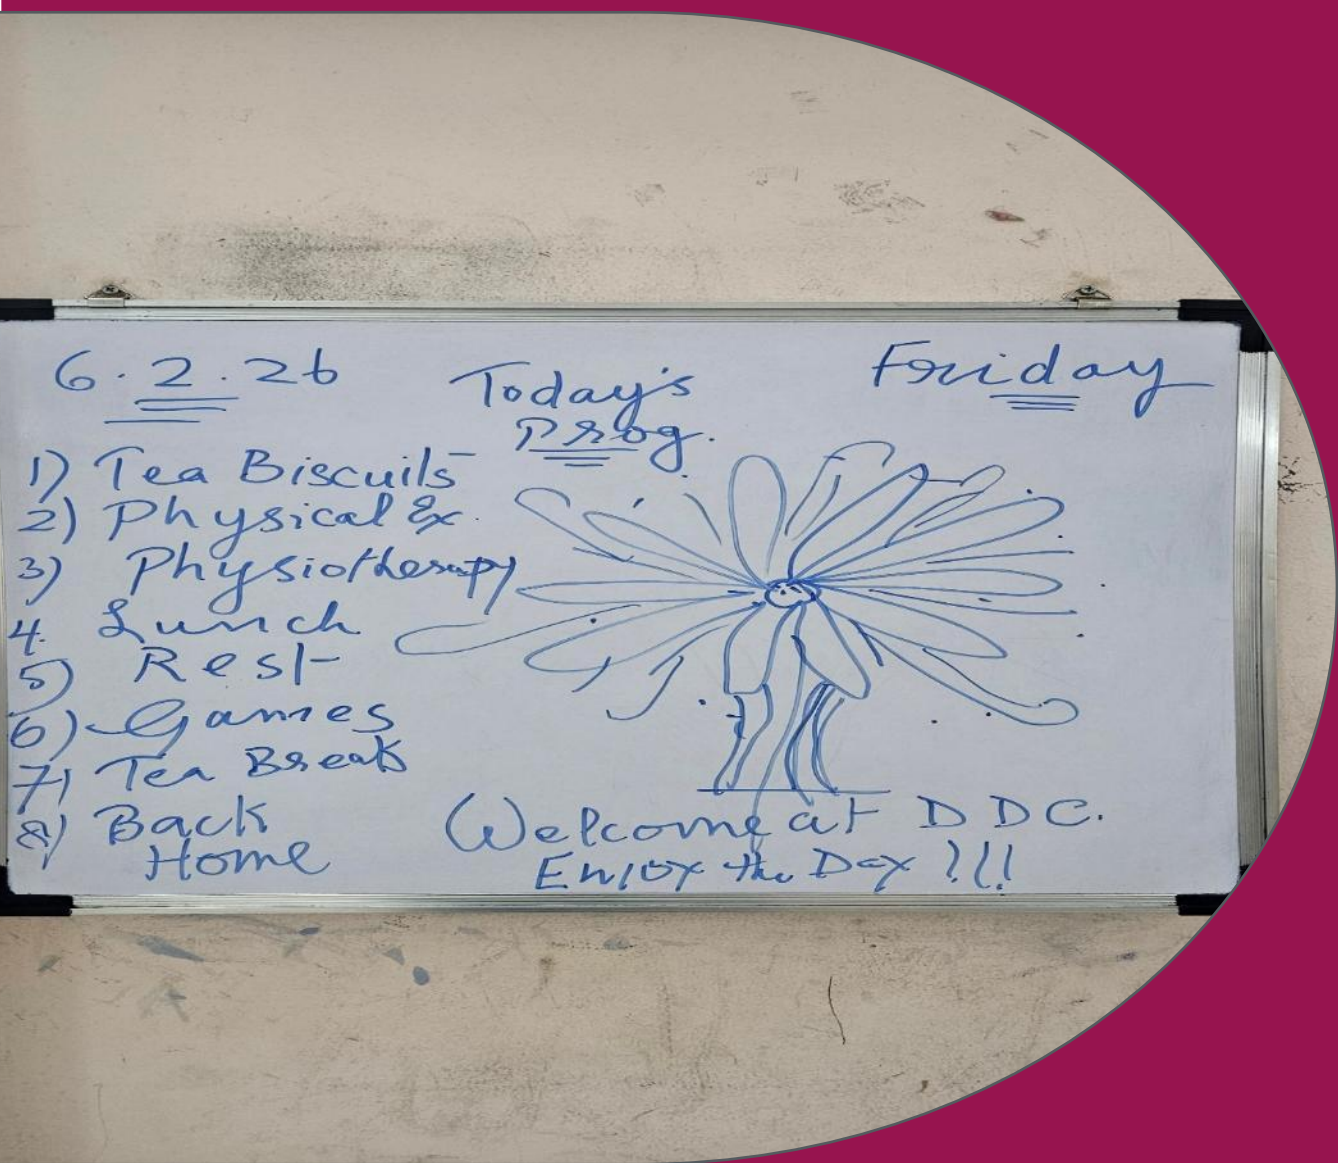 6.2.26
Today's
Prog.
Friday
1) Tea Biscuits
2) Physical Ex.
3) Physiotherapy
4. Lunch
5) Rest
6) Games
7) Tea Break
8) Back
Home
Welcome at DDC.
Enjoy the Day !!!